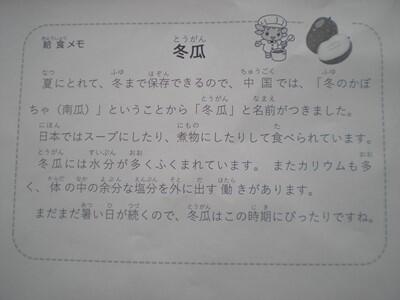 給食メモ
冬瓜
夏にとれて、冬まで保存できるので、中国では、「冬のかぼ
ちゃ（南瓜）」ということから「冬瓜」と名前がつきました。
日本ではスープにしたり、煮物にしたりして食べられています。
冬瓜には水分が多くふくまれています。またカリウムも多
く、体の中の余分な塩分を外に出す働きがあります。
まだまだ暑い日が続くので、冬瓜はこの時期にぴったりですね。